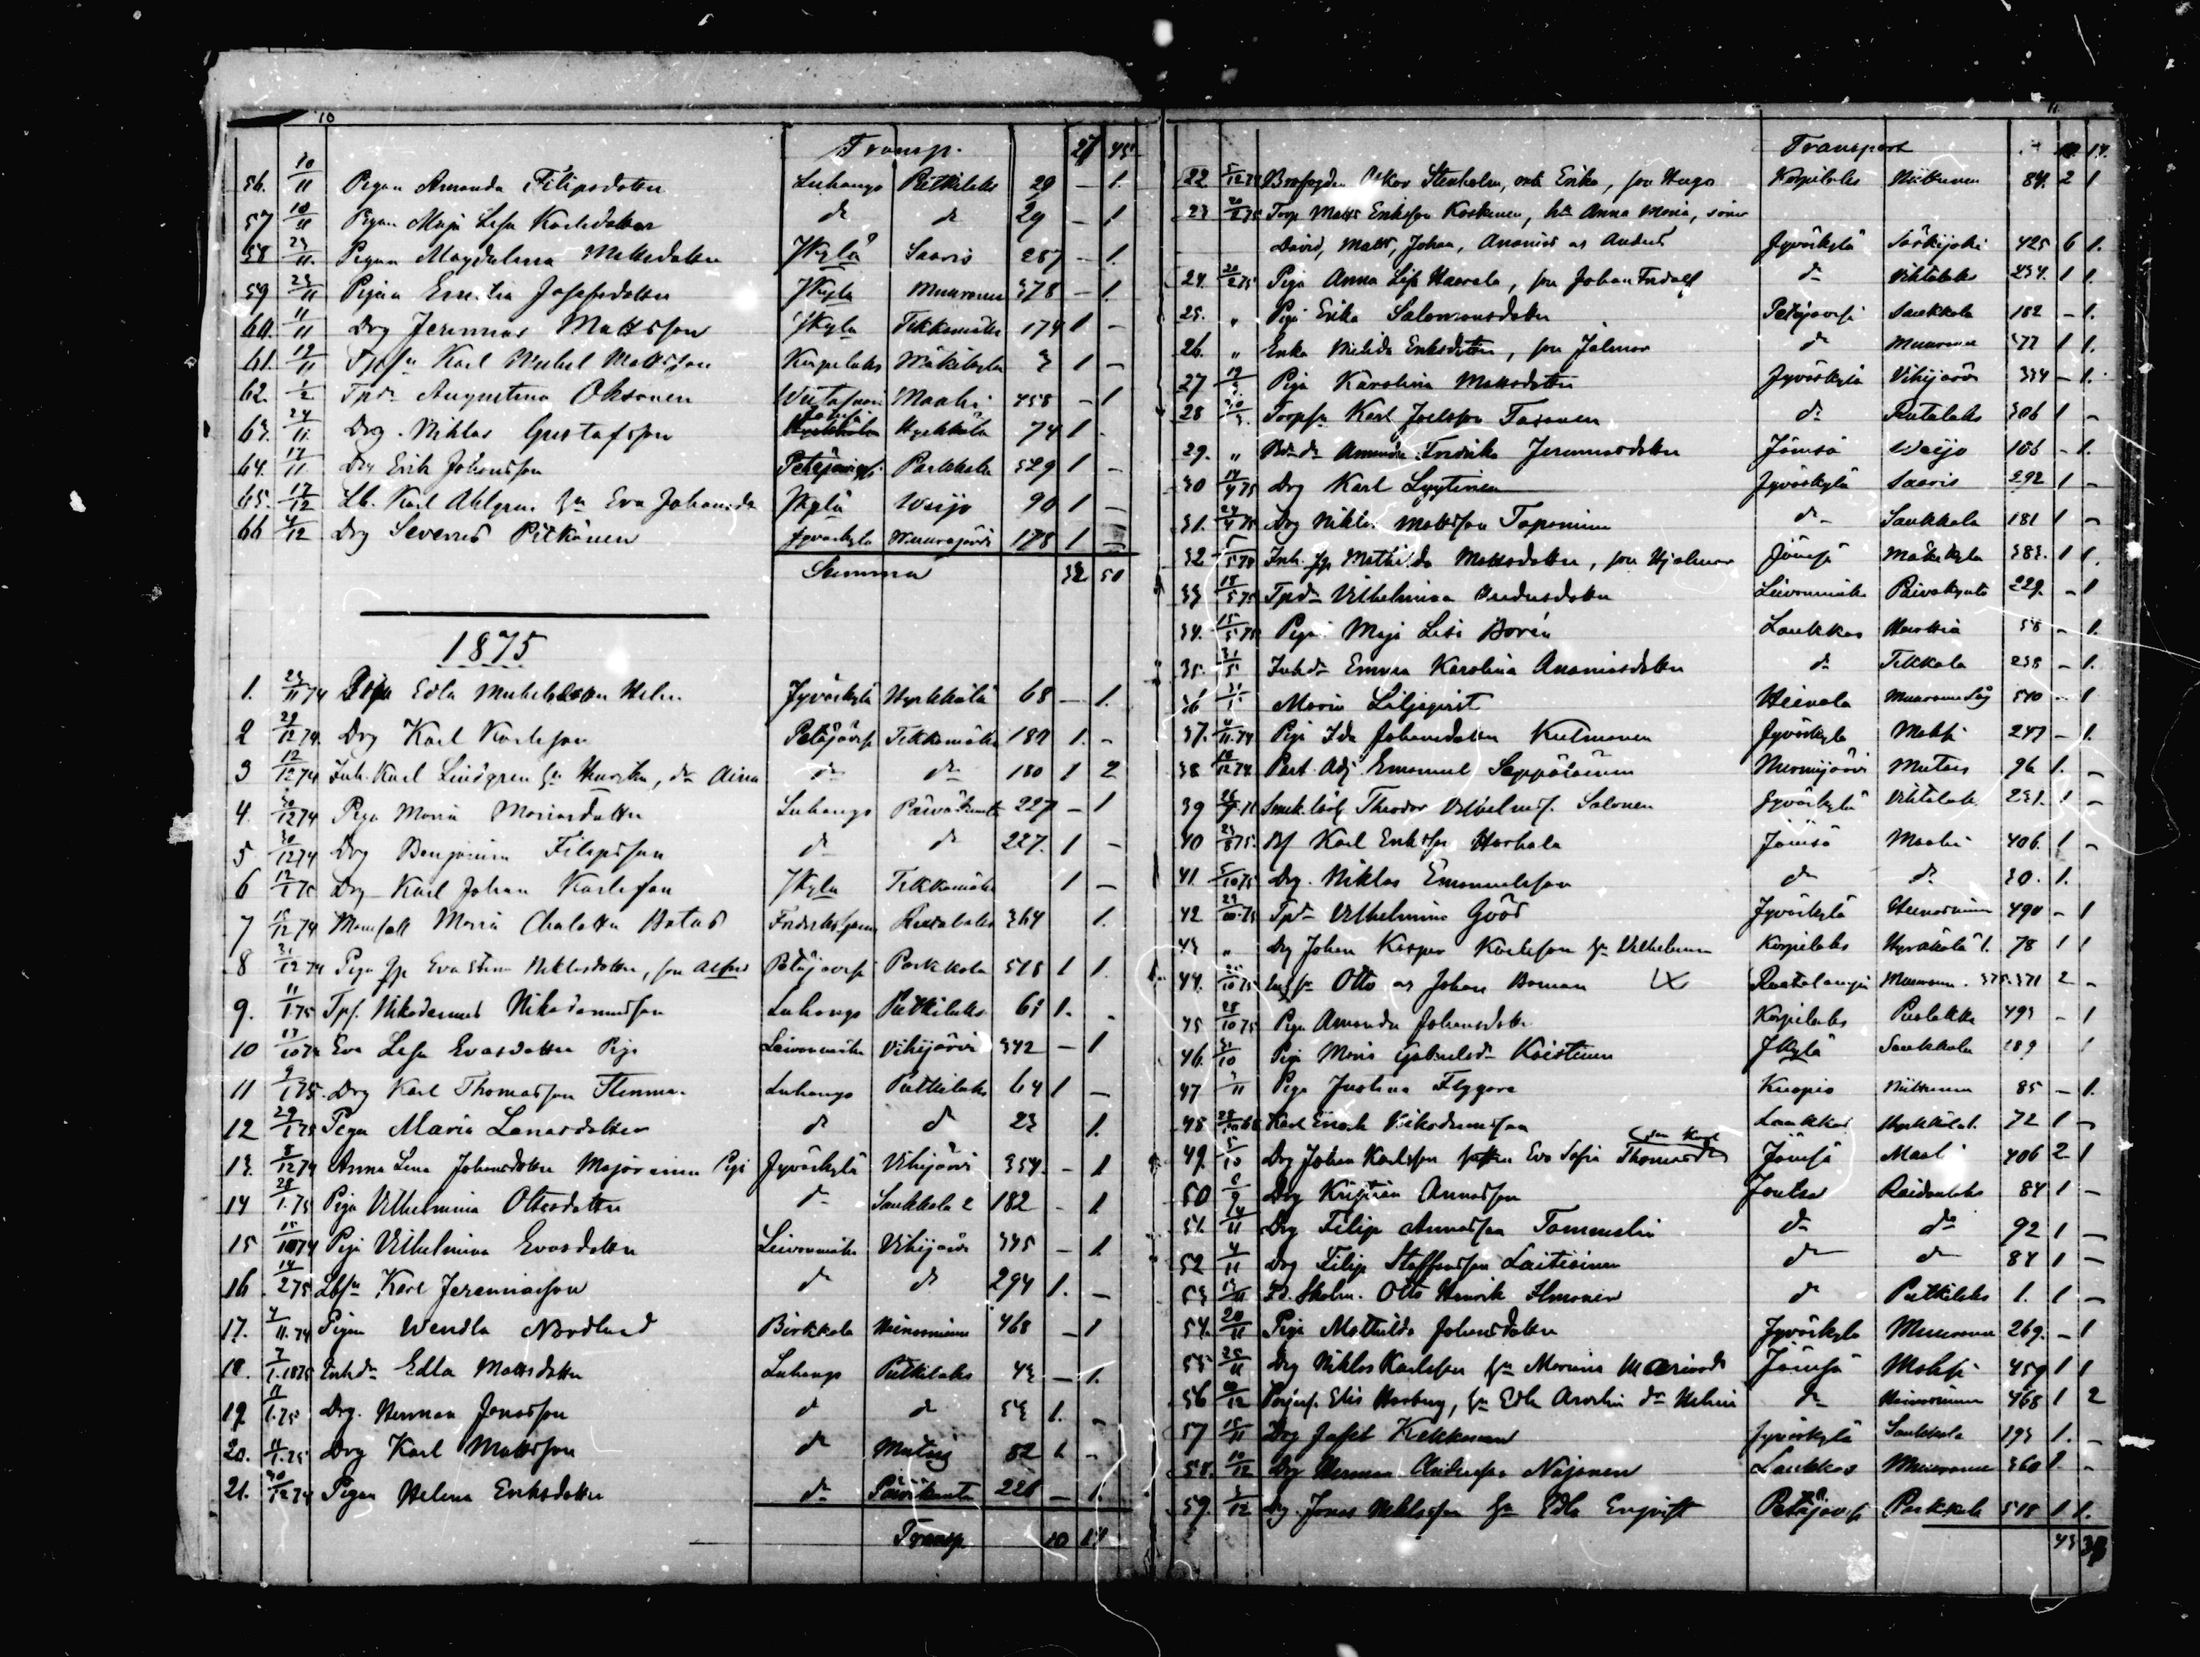 10
Transp. 27 45
56. 10/11 Pigan Amanda Filipsdotter Luhango Putkilaks 29 – 1.
57 10/11 Pigan Maja Lisa Karlsdotter d:o d:o 29 – 1
58 23/11. Pigan Magdalena Mattsdotter Jkylä Saaris 287 – 1.
59 23/11 Pigan Josefsdotter Jkylä Muurame 378 – 1.
60. 11/11 Drg Jeremias Mattsson Jkylä Tikkamäki 174 1 –
61. 12/11 Karl Mikel Mattsson Korpilaks Mäkikylä 3 1 –
62. Augustina Oksanen Maahi 458 – 1
63. 24/11. Drg. Niklas Gustafsson Jämsä Hyrkkälä 74 1 .
64. 17/11 Drg Erik Johansson Petäjävesi Parkkola 529 1 –
65. 17/12 Lb. Karl Ahlgren h:u Eva Johansd:r Jkylä Weijo 90 1 –
66 4/12 Drg Severus Pitkänen Jyväskylä 178 1 –
Summa 32 50
1875
1. 23/11 74 Edla Mikelsdotter Helin Jyväskylä Hyrkkälä 68 – 1.
2 29/12 74. Drg Karl Karlsson Petäjävesi Tikkamäki 180 1. –
3 12/12 74 Inh. Karl Lindgren h:u, d:r Aina d:o d:o 180 1 2
4. 30/12 74 Piga Maria Mariasdotter Luhango Päiväkunta 227 – 1
5 30/12 74 Drg Benjamin Filipsson d:o d:o 227. 1 –
6 12/1 75 Drg Karl Johan Karlsson Jkylä Tikkamäki 1 –
7 15/12 74 Mamsell Maria Chalotta Fredrikshamn Rutalaks 364 1.
8 31/12 74 Piga Eva Stina Niklasdotter, son Alfred Petäjävesi Parkkola 518 1 1.
9. 11/1 75 Tps. Nikodemus Nikodemusson Luhango Putkilaks 61 1. .
10 17/10 74 Eva Lisa Evasdotter Piga Leivonmäki Vihijärvi 342 – 1
11 9/1 75. Drg Karl Thomasson Stenman Luhango Putkilaks 64 1 –
12 29/1 75 Piga Maria Lenasdotter d:o d:o 23 1.
13. 8/12 74 Anna Lena Johansdotter Majoinen Piga Jyväskylä Vihijärvi 354. – 1
14 28/1. 75 Piga Vilhelmina Ottosdotter d:o Saukkola 2 182 – 1
15 15/10 74 Piga Vilhelmina Evasdotter Leivonmäki Vihijärvi 345 – 1
16 14/2 75 Karl Jeremiasson d:o d:o 294 1. –
17. 7/11. 74 Pigan Wendla Nordlund Birkkala 468 – 1
18. 7/1. 1875 Edla Mattsdotter Luhango Putkilaks 43 – 1.
19 11/1. 75 Drg. Herman Jonasson d:o d:o 53 1. –
20. 11/1. 75 Drg Karl Mattsson d:o Mutas 82 1 –
21. 30/12 74 Pigan Helena Eriksdotter d:o Päiväkunta 226 – 1.
Transp 10 14
11
Transport 10. 14.
22 5/12 74 Oskar Stenholm, Erika, son Hugo Korpilaks Niittunen 84. 2 1
23 20/2 75 Torp. Matts Eriksson Koskinen, h:u Anna Maria, söner
David, Matts, Johan, Ananias o. Anders Jyväskylä Särkijoki 425 6 1.
24. 20/2 75 Piga Anna Lisa Haarala, son Johan Fridolf d:o Vihtalaks 234. 1 1.
25. " Piga Erika Salomonsdotter Petäjävesi Saukkola 182 – 1.
26. " Erika Milida Eriksdotter, son Jalmar d:o Muurame 377 1 1.
27 Piga Karolina Mattsdotter Jyväskylä Vihijärvi 334 – 1.
28 Torps. Karl Joelsson Tarvonen d:o Rutalaks 306 1 –
29. " Amanda Fredrika Jeremiasdotter Jämsä Weijo 106 – 1.
30 14/4 75 Drg Karl Lyytinen Jyväskylä Saaris 292 1 –
31. 24/4 75 Drg Niklas Mattsson Toponinen d:o Saukkola 181 1 –
32 Inh. Mathilda Mattsdotter, son Hjalmar Jämsä Mäkikylä 383. 1 1.
33 15/5 75 Vilhelmina Leivonmäki Päiväkunta 229. – 1
34. 15/5 75 Piga Maja Lisa Borén Laukkas 58 – 1.
35. 31/5 Emma Karolina Ananiasdotter d:o Tikkala 238 – 1.
36 Maria Liljeqvist Heinola Muurame såg 540 – 1
37. 4/11. 74 Piga Ida Johansdotter Kulmanen Jyväskylä Mahsi 247 – 1.
38 Past. Adj. Emanuel Seppäläinen Mutas 96 1. –
39 Theodor Vilhelmss. Salonen Jyväskylä Vihtalaks 231. 1 –
40 Karl Eriksson Harhala Jämsä Maahi 406. 1 –
41. 5/10 75 Drg. Niklas Emanuelsson d:o d:o 30. 1.
42 23/10. 75 Vilhelmina Gröös Jyväskylä 490 – 1
43 " Drg Johan Kasper Karlsson h:u Vilhelmina Korpilaks Hyrkkälä 1. 78 1 1
44. Otto o. Johan Boman Rautalampi Muurame 375. 371 2 –
45 28/10 75 Piga Amanda Johansdotter Korpilaks 493 – 1
46. 31/10 Piga Maria Gabrielsd:r Koistinen Jkylä Saukkola 189 1
47 Piga Justina Flyggare Kuopio Niittunen 85 – 1.
48 Karl Enok Nikodemusson Laukkas Hyrkkälä 1. 72 1 –
49. 5/10 Drg Johan Karlsson hustru Eva Sofia Thomasd:r son Karl Jämsä Maahi 406 2 1
50 Drg Kristian Annasson Joutsa Raidanlaks 84 1 –
51. 14/11 Drg Filip Annasson Tommelin d:o d:o 92 1 –
52 4/11 Drg Filip Staffansson Laitisinen d:o d:o 84 1 –
53 13/11 Otto Henrik Ilmonen d:o Putkilaks 1. 1 –
54. 20/11 Piga Mathilda Johansdotter Jyväskylä Muurame 269. – 1
55 25/11 Drg Niklas Karlsson h:u Maria Mariasd:r Jämsä Mahsi 459 1 1
56 Elis, h:u Edla d:r Helmi d:o 468 1 2
57 15/11 Drg Josef Kekkonen Jyväskylä Saukkola 193 1. –
58. 10/12 Drg Herman Andersson Nojonen Laukkas Muurame 360 1. –
59. 3/12 Drg. Jonas Niklasson h:u Edla Engqvist Petäjävesi Parkkola 518 1 1.
43 38